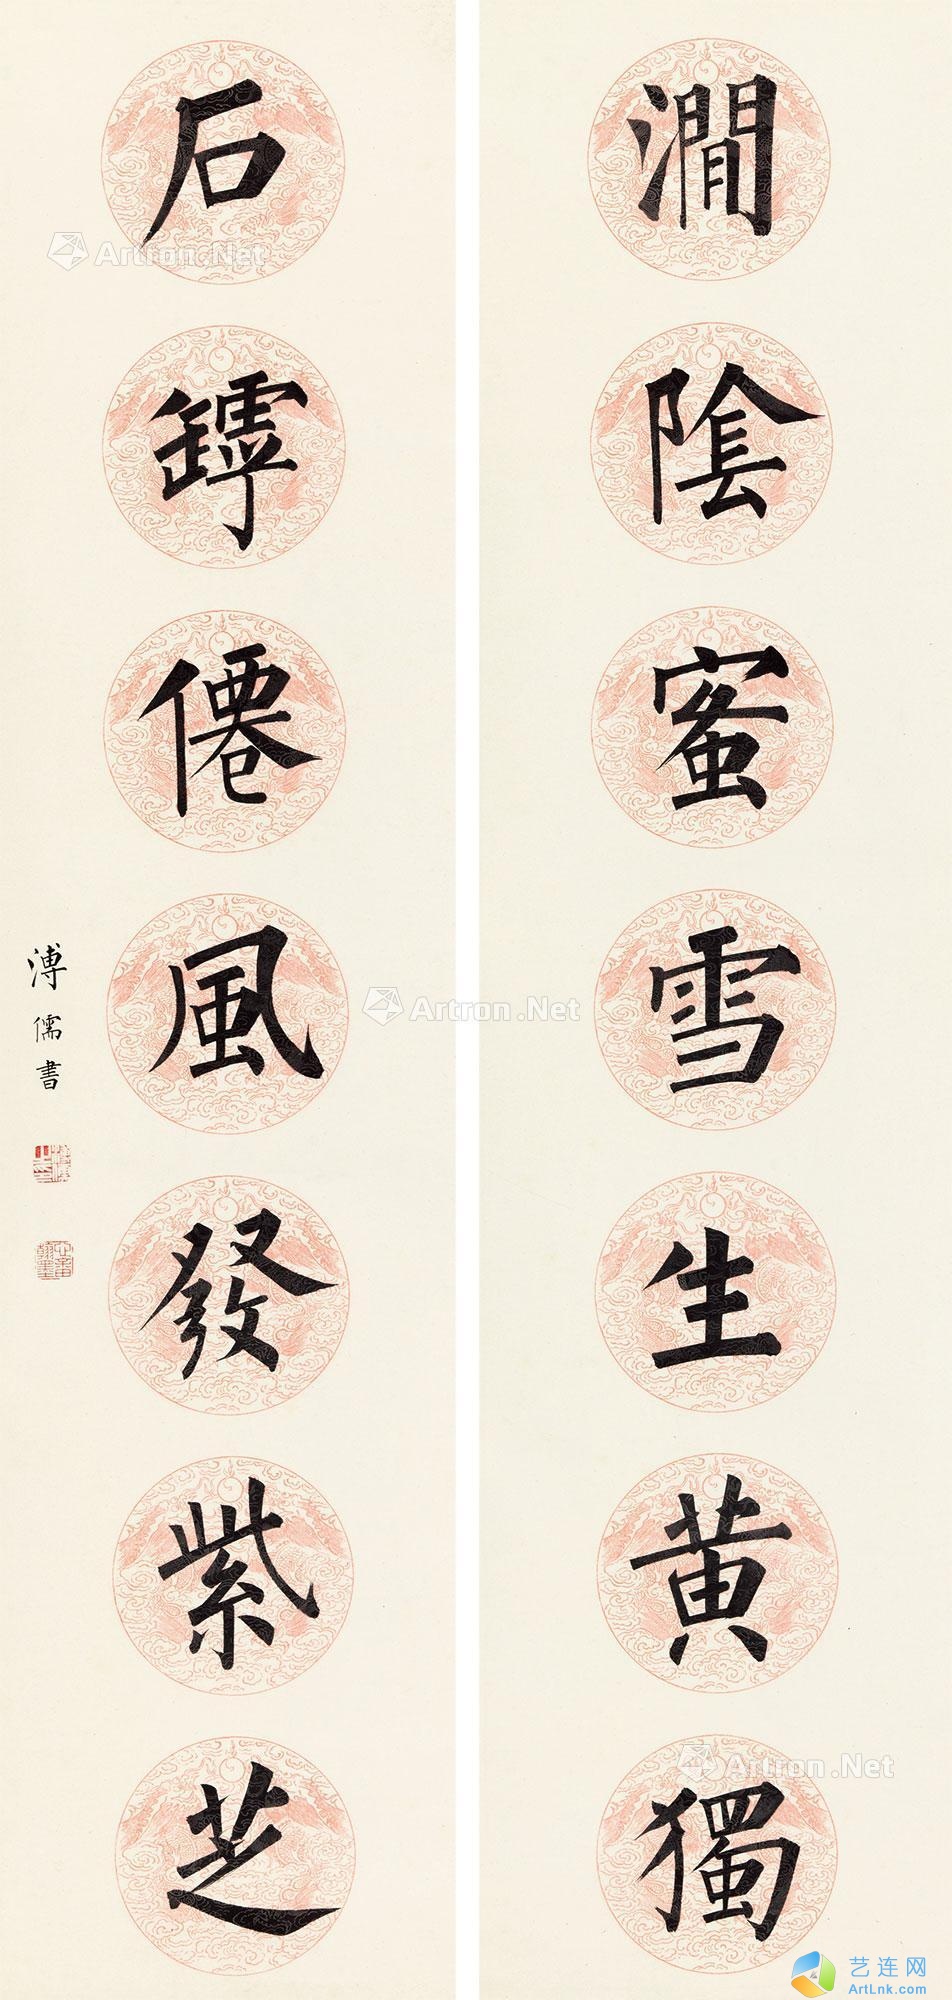 澗陰蜜雪生黄獨
石罅僊風發紫芝
溥儒書
Artron.Net
Artron.Net
Artron.Net
艺连网
ArtLnk.com